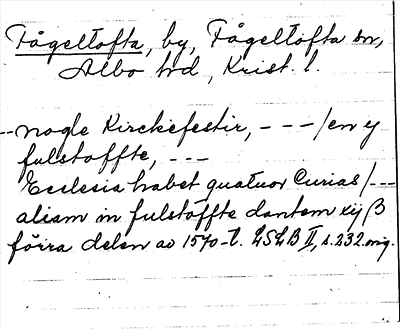 Fågeltofta, by, Fågeltofta sn,
Albo hd, Krist. l.
-- nogle Kirckefestir, - - - /en y
fulstoffte, - - -
Ecclesia habet quatuor Curias/---
aliam in fulstoffte dantem xij β
förra delen av 1570-t. LSLB II, s. 232. orig.